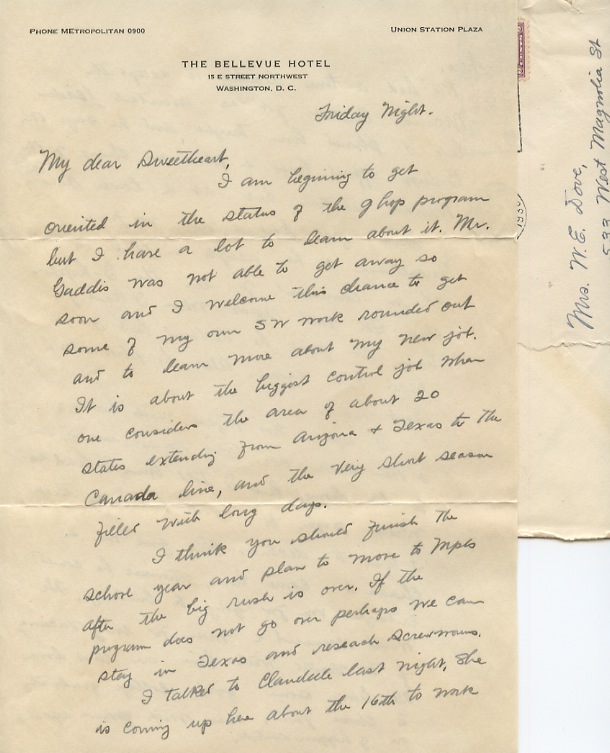 PHONE METROPOLITAN 0900
UNION STATION PLAZA
THE BELLEVUE HOTEL
15 E STREET NORTHWEST
WASHINGTON, D. C.
Friday Night.
My dear Sweetheart,
I am beginning to get
oriented in the status of the g hop program
but I have a lot to learn about it. Mr.
Gaddis was not able to get away so
soon and I welcome this chance to get
some of my own SW work rounded out
and to learn more about my new job.
It is about the biggest control job when
one considers the area of about 20
states extending from Arizona & Texas to the
Canada line, and the very short season
filled with long days.
I think you should finish the
school year and plan to move to Mpls
after the big rush is over. If the
program does not go over perhaps we can
stay in Texas and research screwworms.
I talked to Claudale last night. She
is coming up here about the 16th to work
Mrs. W. E. Dove,
533 West Magnolia St